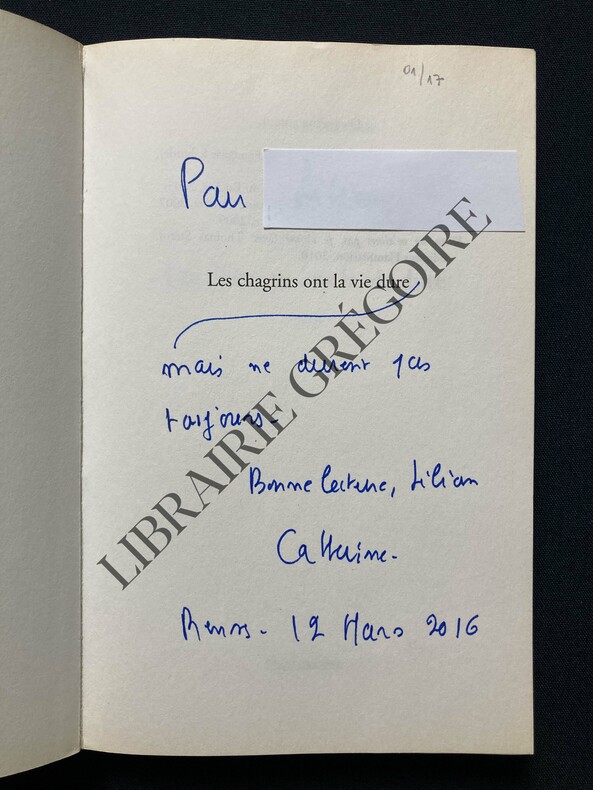 01/17
Pour
Les chagrins ont la vie dure
mais ne durent pas
toujours.
Bonne lecture, Lilian
Catherine.
12 Mars 2016
LIBRAIRIE GRÉGOIRE